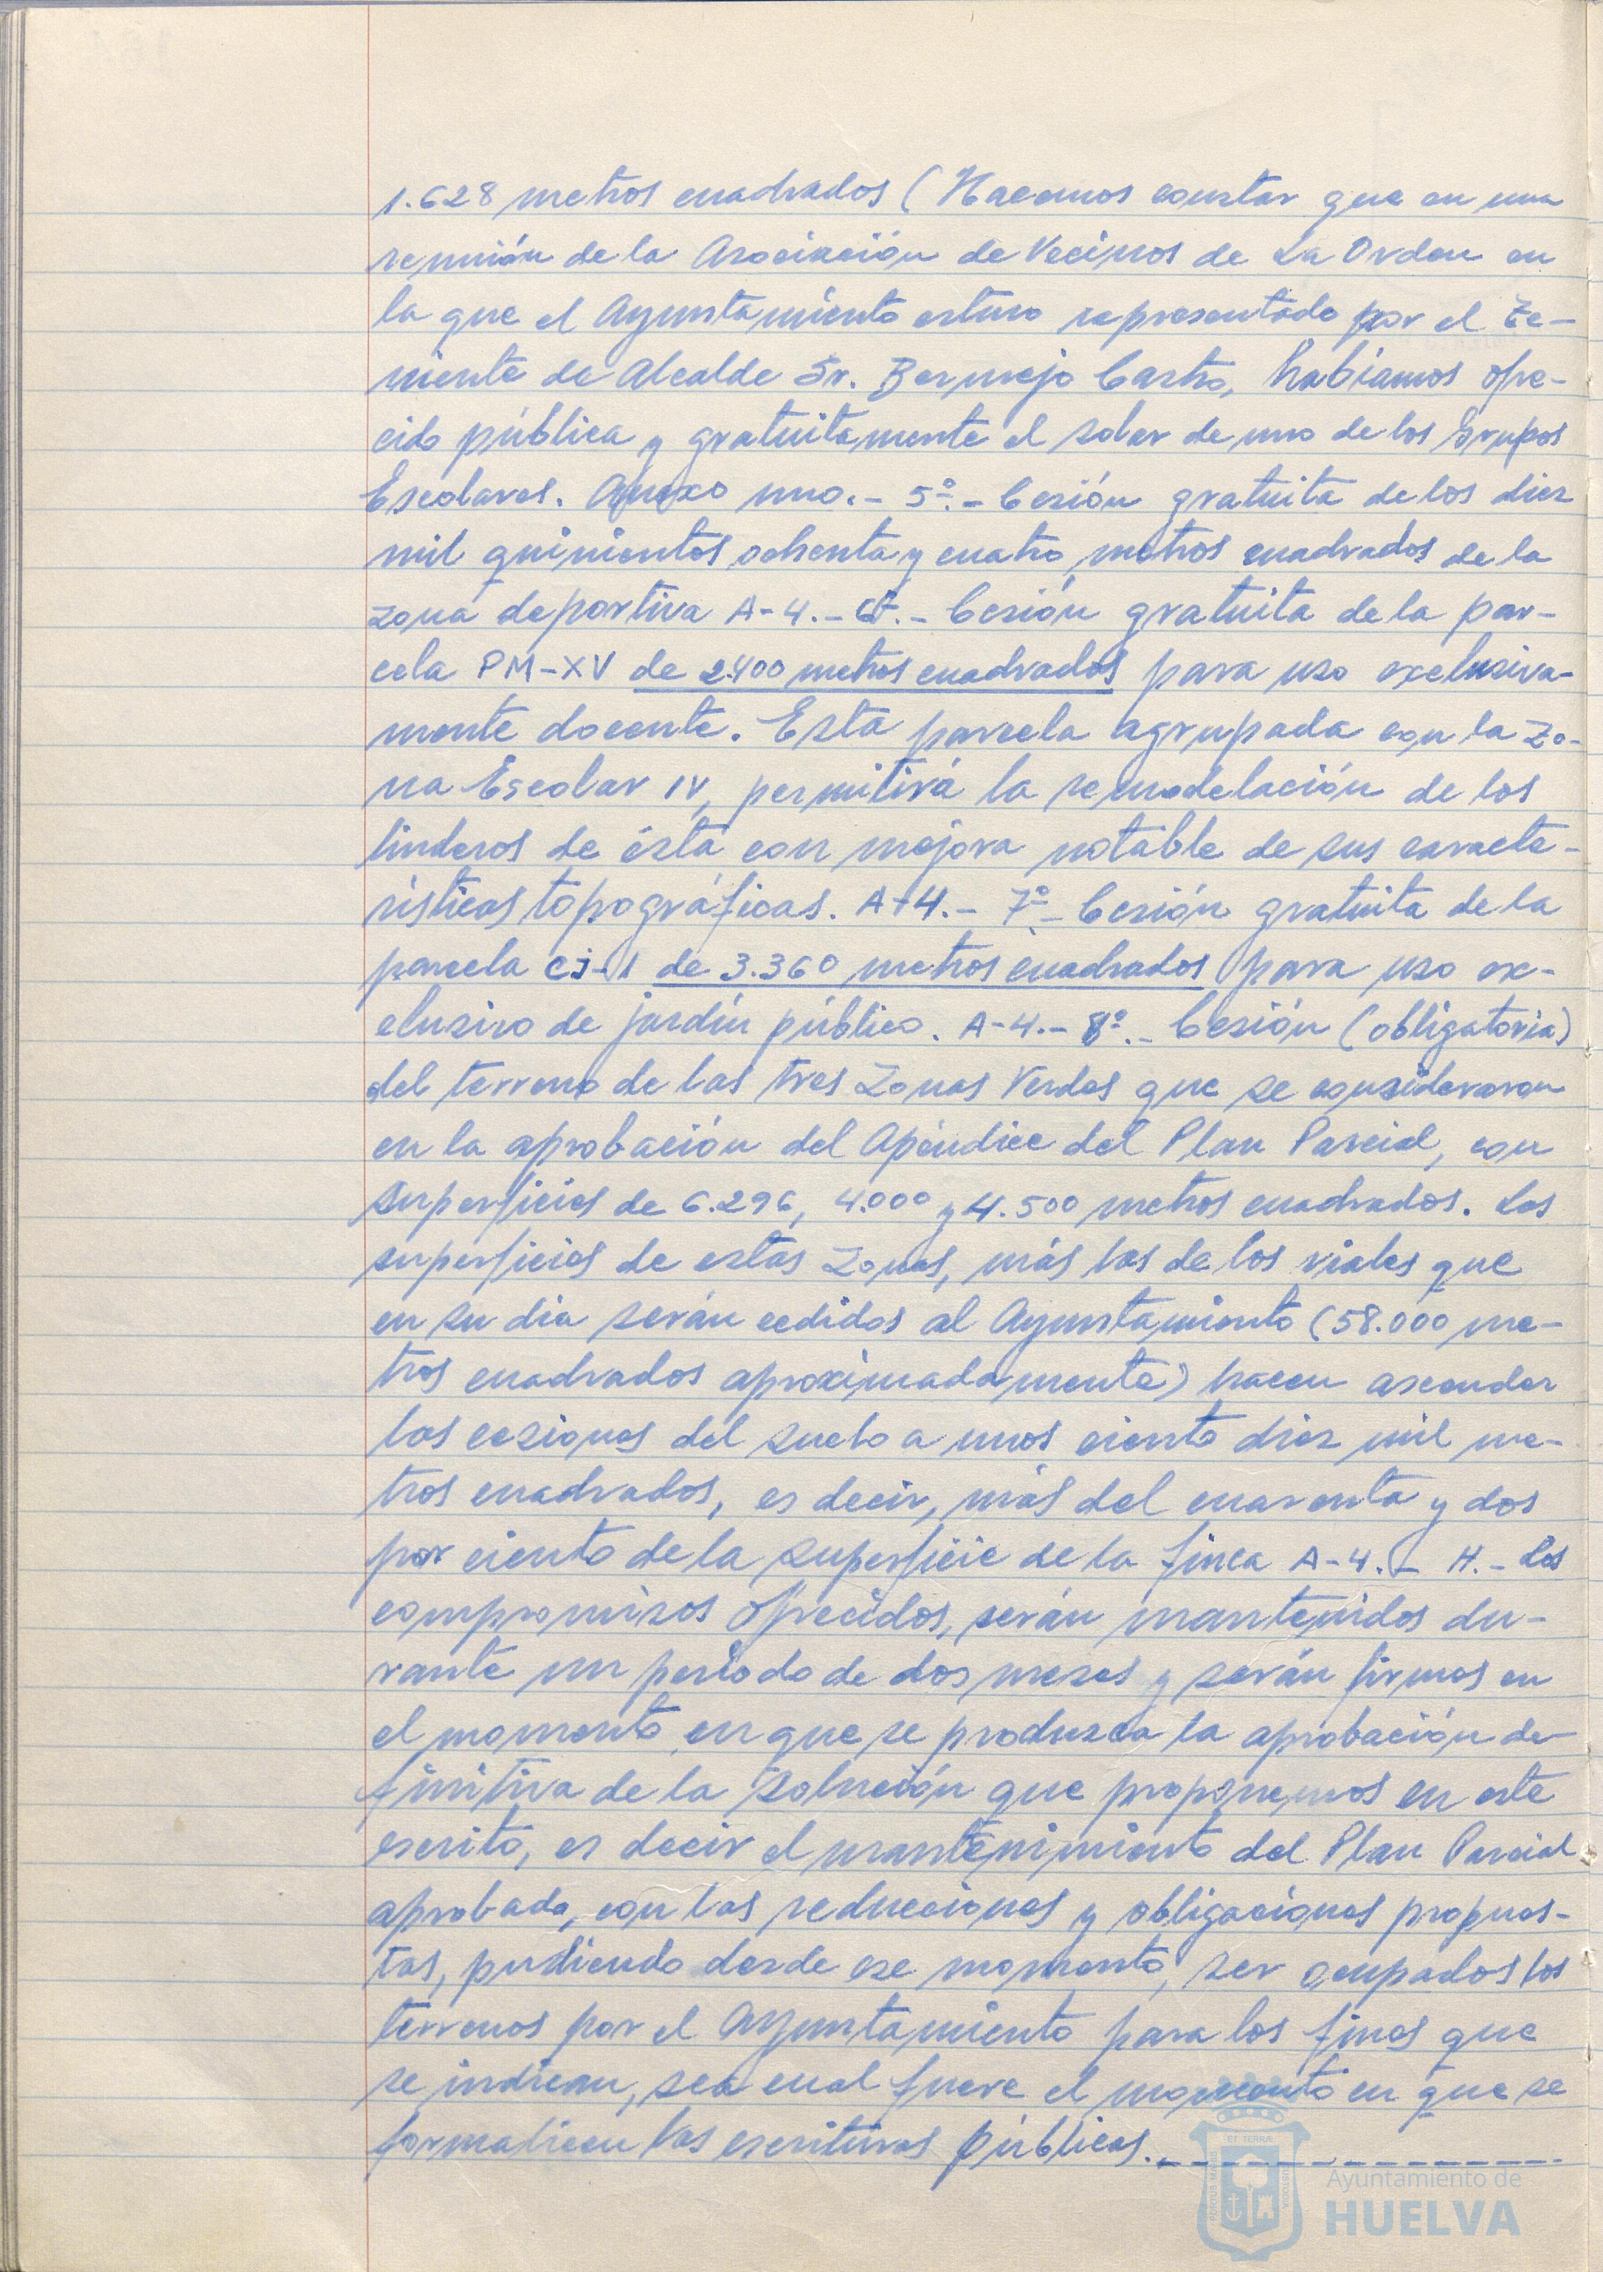 1.628 metros cuadrados (Hacemos constar que en una
reunión de la Asociación de Vecinos de La Orden en
la que el Ayuntamiento estuvo representado por el Te-
niente de Alcalde Sr. Bermejo Castro, habíamos ofre-
cido pública y gratuitamente el solar de uno de los Grupos
Escolares. Anexo uno.- 5º.- Cesión gratuita de los diez
mil quinientos ochenta y cuatro metros cuadrados de la
zona deportiva A-4.- 6º.- Cesión gratuita de la par-
cela PM-XV de 2.400 metros cuadrados para uso exclusiva-
mente docente. Esta parcela agrupada con la Zo-
na Escolar IV, permitirá la remodelación de los
linderos de ésta con mejora notable de sus caracte-
rísticas topográficas. A-4.- 7º- Cesión gratuita de la
parcela CJ-1 de 3.360 metros cuadrados para uso ex-
clusivo de jardín público. A-4.- 8º.- Cesión (obligatoria)
del terreno de las tres Zonas Verdes que se consideraron
en la aprobación del Apéndice del Plan Parcial, con
superficies de 6.296, 4.000 y 4.500 metros cuadrados. Las
superficies de estas Zonas, más las de los viales que
en su día serán cedidos al Ayuntamiento (58.000 me-
tros cuadrados aproximadamente) hacen ascender
las cesiones del suelo a unos ciento diez mil me-
tros cuadrados, es decir, más del cuarenta y dos
por ciento de la superficie de la finca A-4.- H.- Los
compromisos ofrecidos, serán mantenidos du-
rante un periodo de dos meses y serán firmes en
el momento en que se produzca la aprobación de-
finitiva de la solución que proponemos en este
escrito, es decir el mantenimiento del Plan Parcial
aprobado, con las reducciones y obligaciones propues-
tas, pudiendo desde ese momento, ser ocupados los
terrenos por el Ayuntamiento para los fines que
se indican, sea cual fuere el momento en que se
formalicen las escrituras públicas.
Ayuntamiento de
HUELVA